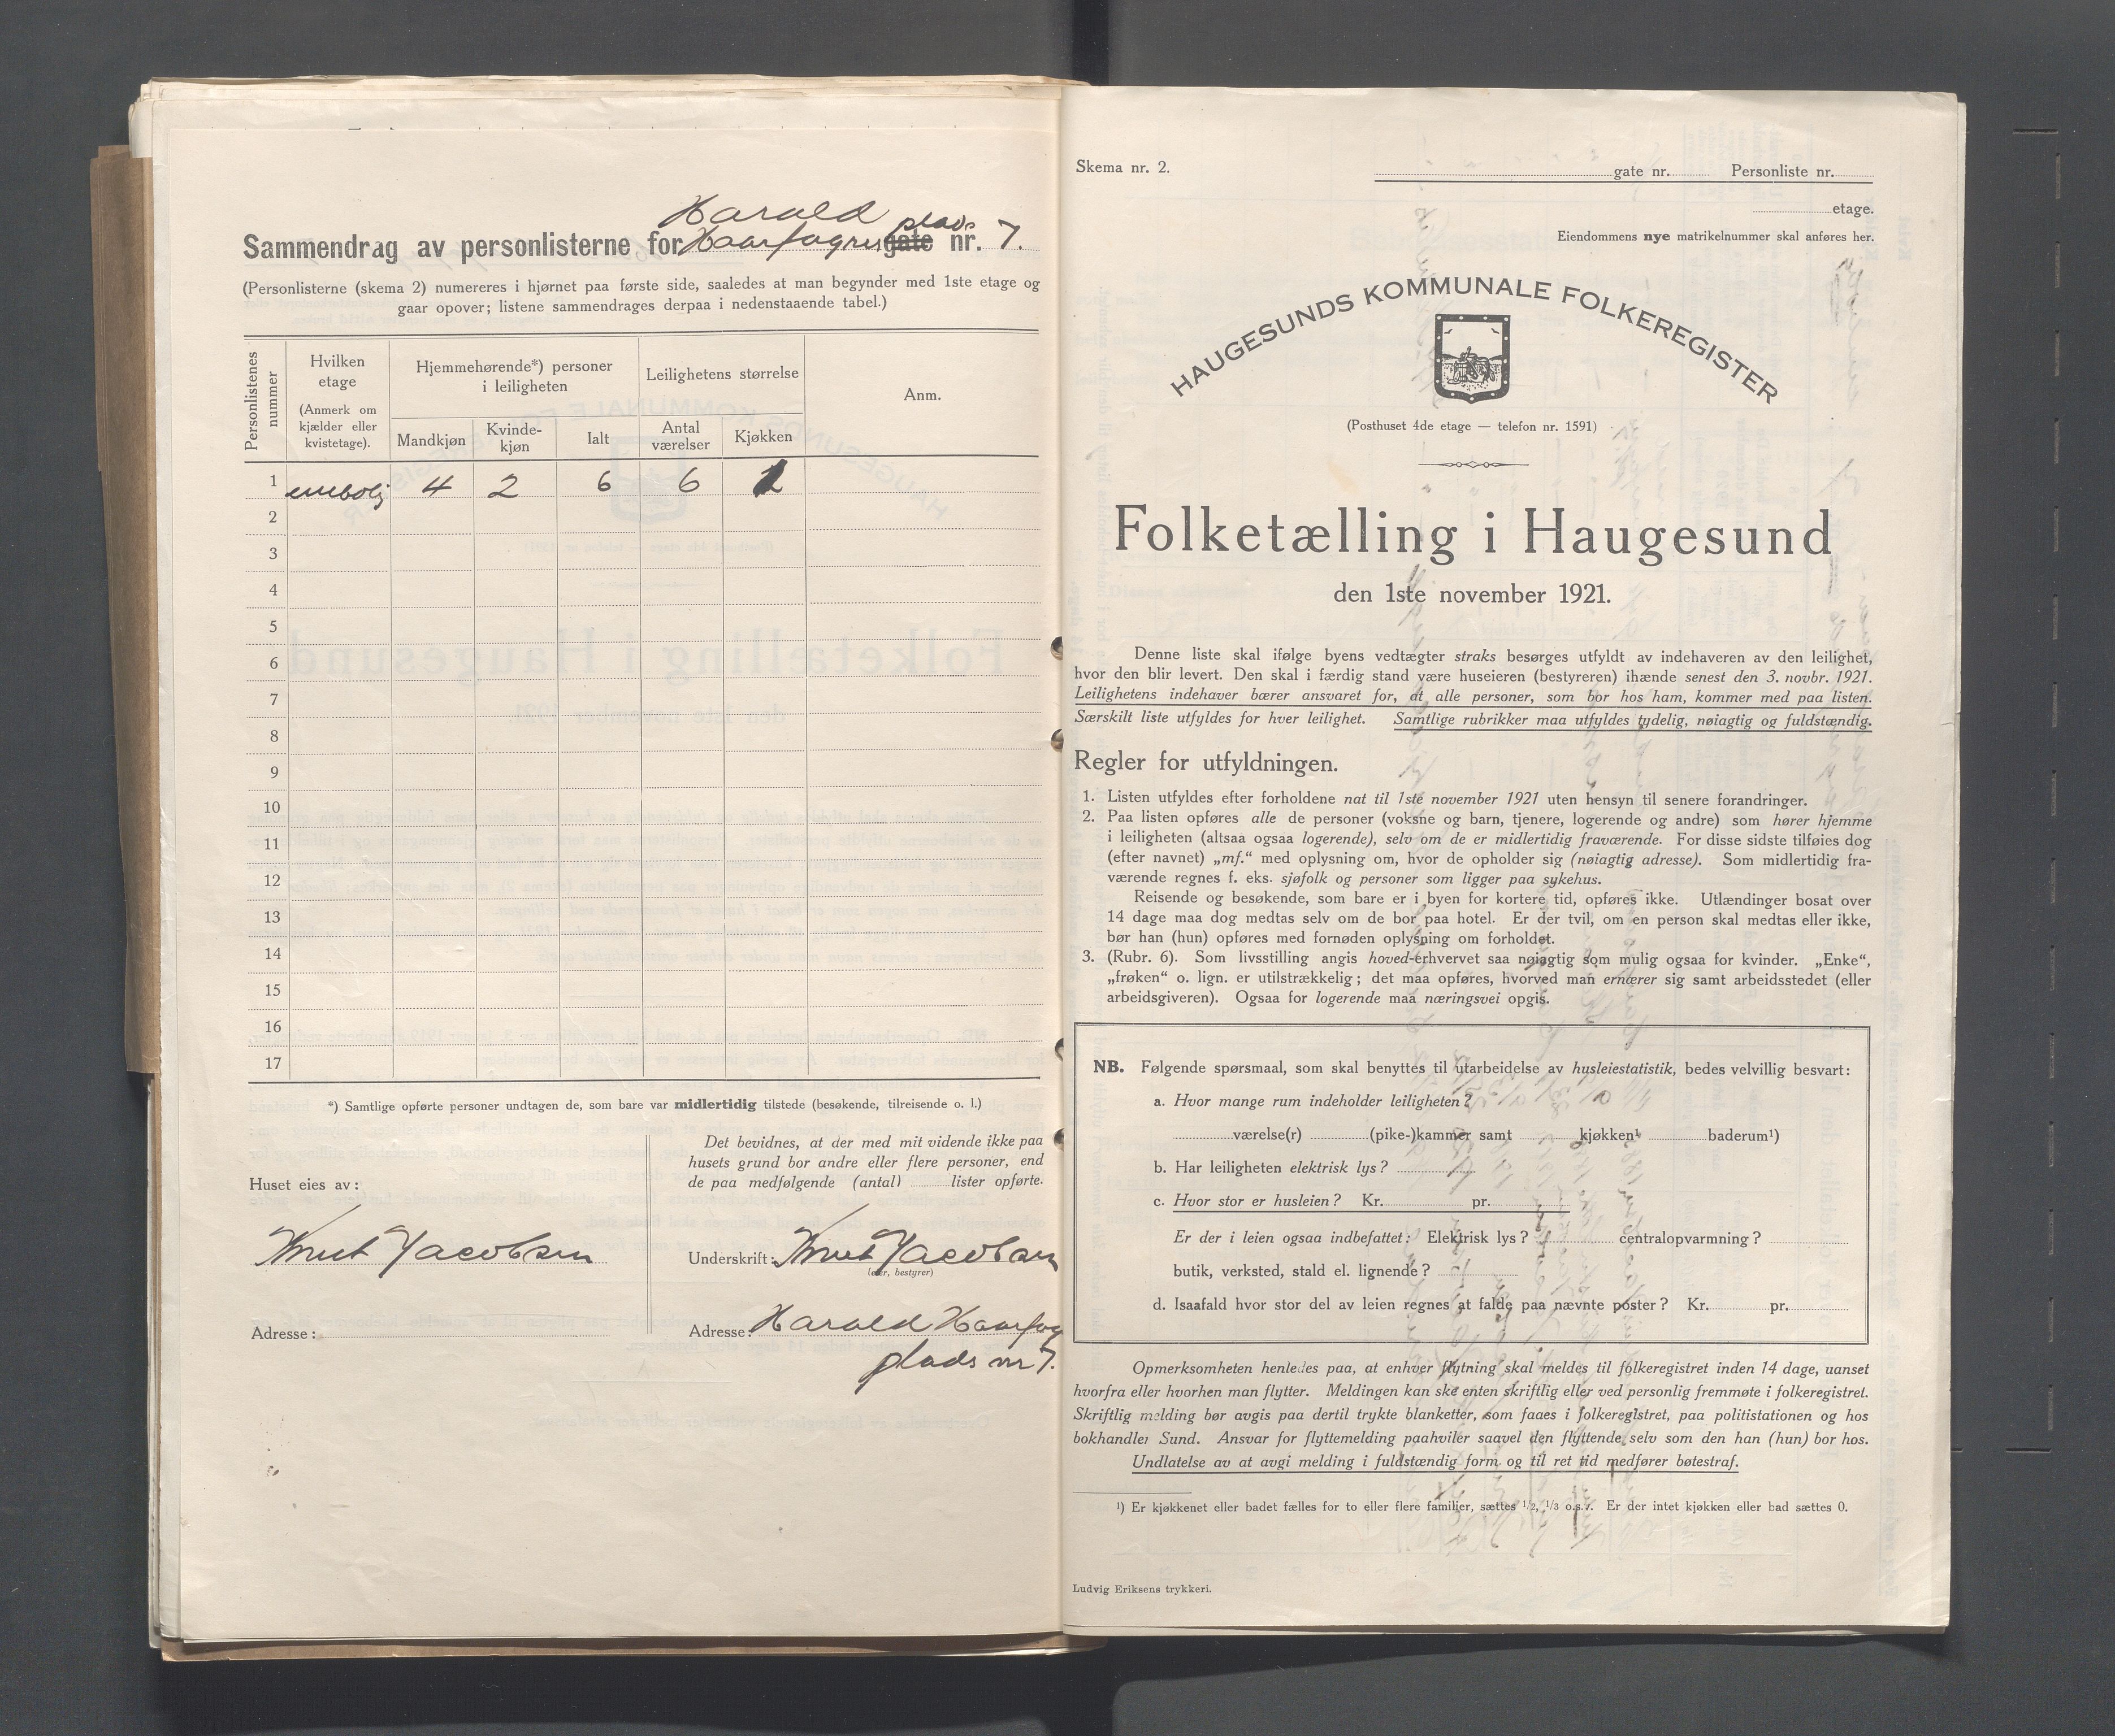 Harald plads
Sammendrag av personlisterne for Haarfagres gate nr. 7.
(Personlisterne (skema 2) numereres i hjørnet paa første side, saaledes at man begynder med 1ste etage og
gaar opover; listene sammendrages derpaa i nedenstaaende tabel.)
Personlistenes nummer
Hvilken etage
(Anmerk om kjælder eller kvistetage).
Hjemmehørende*) personer i leiligheten
Leilighetens størrelse
Anm.
Mandkjøn
Kvinde-kjøn
Ialt
Antal værelser
Kjøkken
1 enebolig 4 2 6 6 1
2
3
4
5
6
7
8
9
10
11
12
13
14
15
16
17
*) Samtlige opførte personer undtagen de, som bare var midlertidig tilstede (besøkende, tilreisende o. l.)
Huset eies av:
Knut Jacobsen
Adresse:
Det bevidnes, at der med mit vidende ikke paa
husets grund bor andre eller flere personer, end
de paa medfølgende (antal) ........ lister opførte.
Underskrift: Knut Jacobsen
(eier, bestyrer)
Adresse: Harald Haarfag
plads nr 7.
Skema nr. 2.
gate nr. ........ Personliste nr. ........
........ etage.
Eiendommens nye matrikelnummer skal anføres her.
HAUGESUNDS KOMMUNALE FOLKEREGISTER
(Posthuset 4de etage — telefon nr. 1591)
Folketælling i Haugesund
den 1ste november 1921.
Denne liste skal ifølge byens vedtægter straks besørges utfyldt av indehaveren av den leilighet,
hvor den blir levert. Den skal i færdig stand være huseieren (bestyreren) ihænde senest den 3. novbr. 1921.
Leilighetens indehaver bærer ansvaret for, at alle personer, som bor hos ham, kommer med paa listen.
Særskilt liste utfyldes for hver leilighet. Samtlige rubrikker maa utfyldes tydelig, nøiagtig og fuldstændig.
Regler for utfyldningen.
1. Listen utfyldes efter forholdene nat til 1ste november 1921 uten hensyn til senere forandringer.
2. Paa listen opføres alle de personer (voksne og barn, tjenere, logerende og andre) som hører hjemme
i leiligheten (altsaa ogsaa logerende), selv om de er midlertidig fraværende. For disse sidste tilføies dog
(efter navnet) „mf.“ med oplysning om, hvor de opholder sig (nøiagtig adresse). Som midlertidig fra-
værende regnes f. eks. sjøfolk og personer som ligger paa sykehus.
Reisende og besøkende, som bare er i byen for kortere tid, opføres ikke. Utlændinger bosat over
14 dage maa dog medtas selv om de bor paa hotel. Er der tvil, om en person skal medtas eller ikke,
bør han (hun) opføres med fornøden oplysning om forholdet.
3. (Rubr. 6). Som livsstilling angis hoved-erhvervet saa nøiagtig som mulig ogsaa for kvinder. „Enke“,
„frøken“ o. lign. er utilstrækkelig; det maa opføres, hvorved man ernærer sig samt arbeidsstedet (eller
arbeidsgiveren). Ogsaa for logerende maa næringsvei opgis.
NB. Følgende spørsmaal, som skal benyttes til utarbeidelse av husleiestatistik, bedes velvillig besvart:
a. Hvor mange rum indeholder leiligheten?
........ værelse(r) ........ (pike-)kammer samt ........ kjøkken¹ ........ baderum¹)
b. Har leiligheten elektrisk lys? ........
c. Hvor stor er husleien? Kr. ........ pr. ........
Er der i leien ogsaa indbefattet: Elektrisk lys? ........ centralopvarmning? ........
butik, verksted, stald el. lignende? ........
d. Isaafald hvor stor del av leien regnes at falde paa nævnte poster? Kr. ........ pr. ........
Opmerksomheten henledes paa, at enhver flytning skal meldes til folkeregistret inden 14 dage, uanset
hvorfra eller hvorhen man flytter. Meldingen kan ske enten skriftlig eller ved personlig fremmøte i folkeregistret.
Skriftlig melding bør avgis paa dertil trykte blanketter, som faaes i folkeregistret, paa politistationen og hos
bokhandler Sund. Ansvar for flyttemelding paahviler saavel den flyttende selv som den han (hun) bor hos.
Undlatelse av at avgi melding i fuldstændig form og til ret tid medfører bøtestraf.
¹) Er kjøkkenet eller badet fælles for to eller flere familier, sættes 1/2, 1/3 o.s.v. Er der intet kjøkken eller bad sættes 0.
Ludvig Eriksens trykkeri.